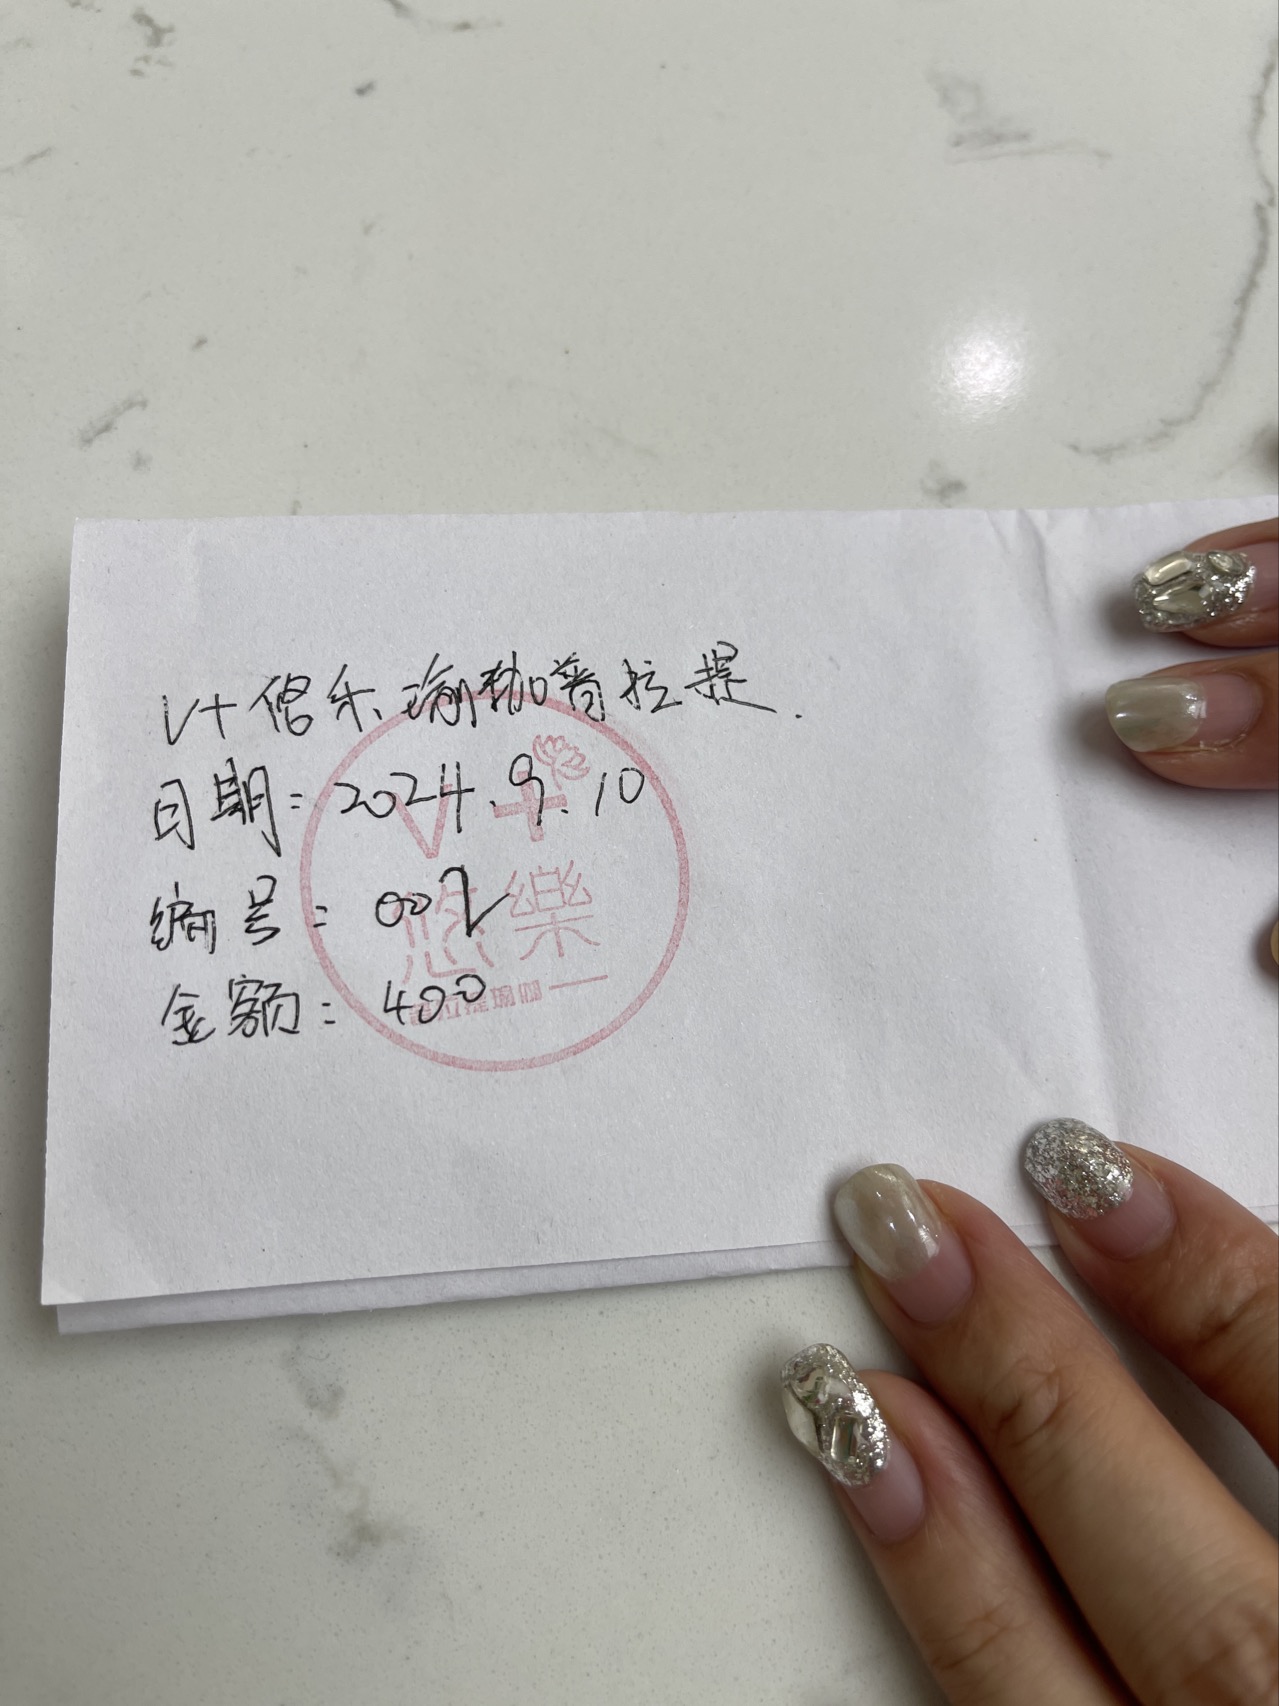 V+悠乐瑜伽普拉提.
日期：2024.9.10
编号：002
金额：400
V+
悠樂
普拉提瑜伽